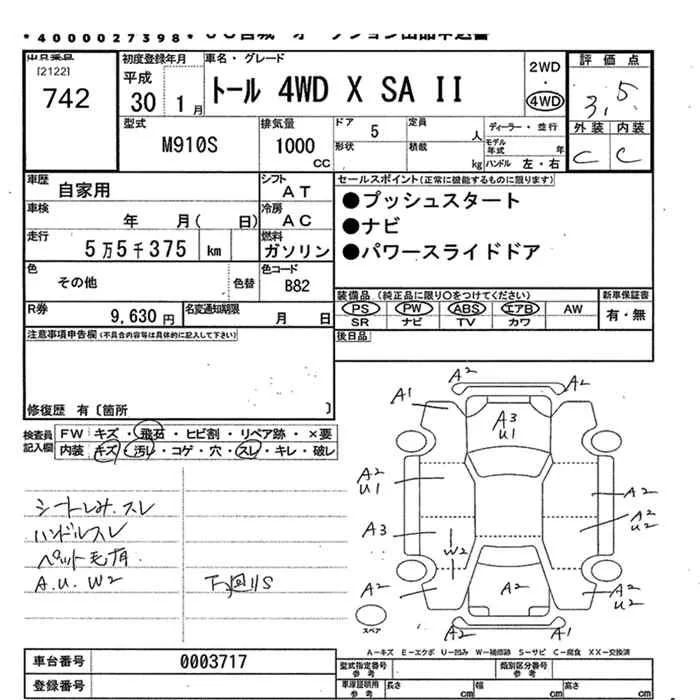 *4000027398*
出品番号
[2122]
742
初度登録年月
平成
30 1月
車名・グレード
トール 4WD X SA II
2WD
4WD
評価点
3.5
外装 内装
C C
型式
M910S
排気量
1000
cc
ドア
5
定員
人
形状
積載
kg
ディーラー・並行
モデル年式
年
ハンドル 左・右
車歴
自家用
シフト
AT
車検
年 月( 日)
冷房
AC
走行
5万5千375 km
燃料
ガソリン
色
その他
色替
色コード
B82
R券
9,630円
名変通知期限
月 日
セールスポイント(正常に機能するものに限ります)
●プッシュスタート
●ナビ
●パワースライドドア
装備品(純正品に限り○をつけてください)
新車保証書
PS PW ABS エアB AW
SR ナビ TV カワ
有・無
後日品
注意事項申告欄(不具合内容等は具体的に記入して下さい)
修復歴 有〔箇所 〕
検査員記入欄
FW キズ・飛石・ヒビ割・リペア跡・×要
内装 キズ・汚レ・コゲ・穴・スレ・キレ・破レ
シートしみ.スレ
ハンドルスレ
ペット毛有
A.U.W2
下回りS
A2
A2
A1
A3
U1
A2
U1
A2
A2
U2
A3
W2
A2
A2
A2
U2
A2
A1
スペア
A－キズ E－エクボ U－凹み W－補修跡 S－サビ C－腐食 XX－交換済
車台番号
0003717
登録番号
型式指定番号
参考
類別区分番号
参考
車庫証明用
参考
長さ cm
幅 cm
高さ cm